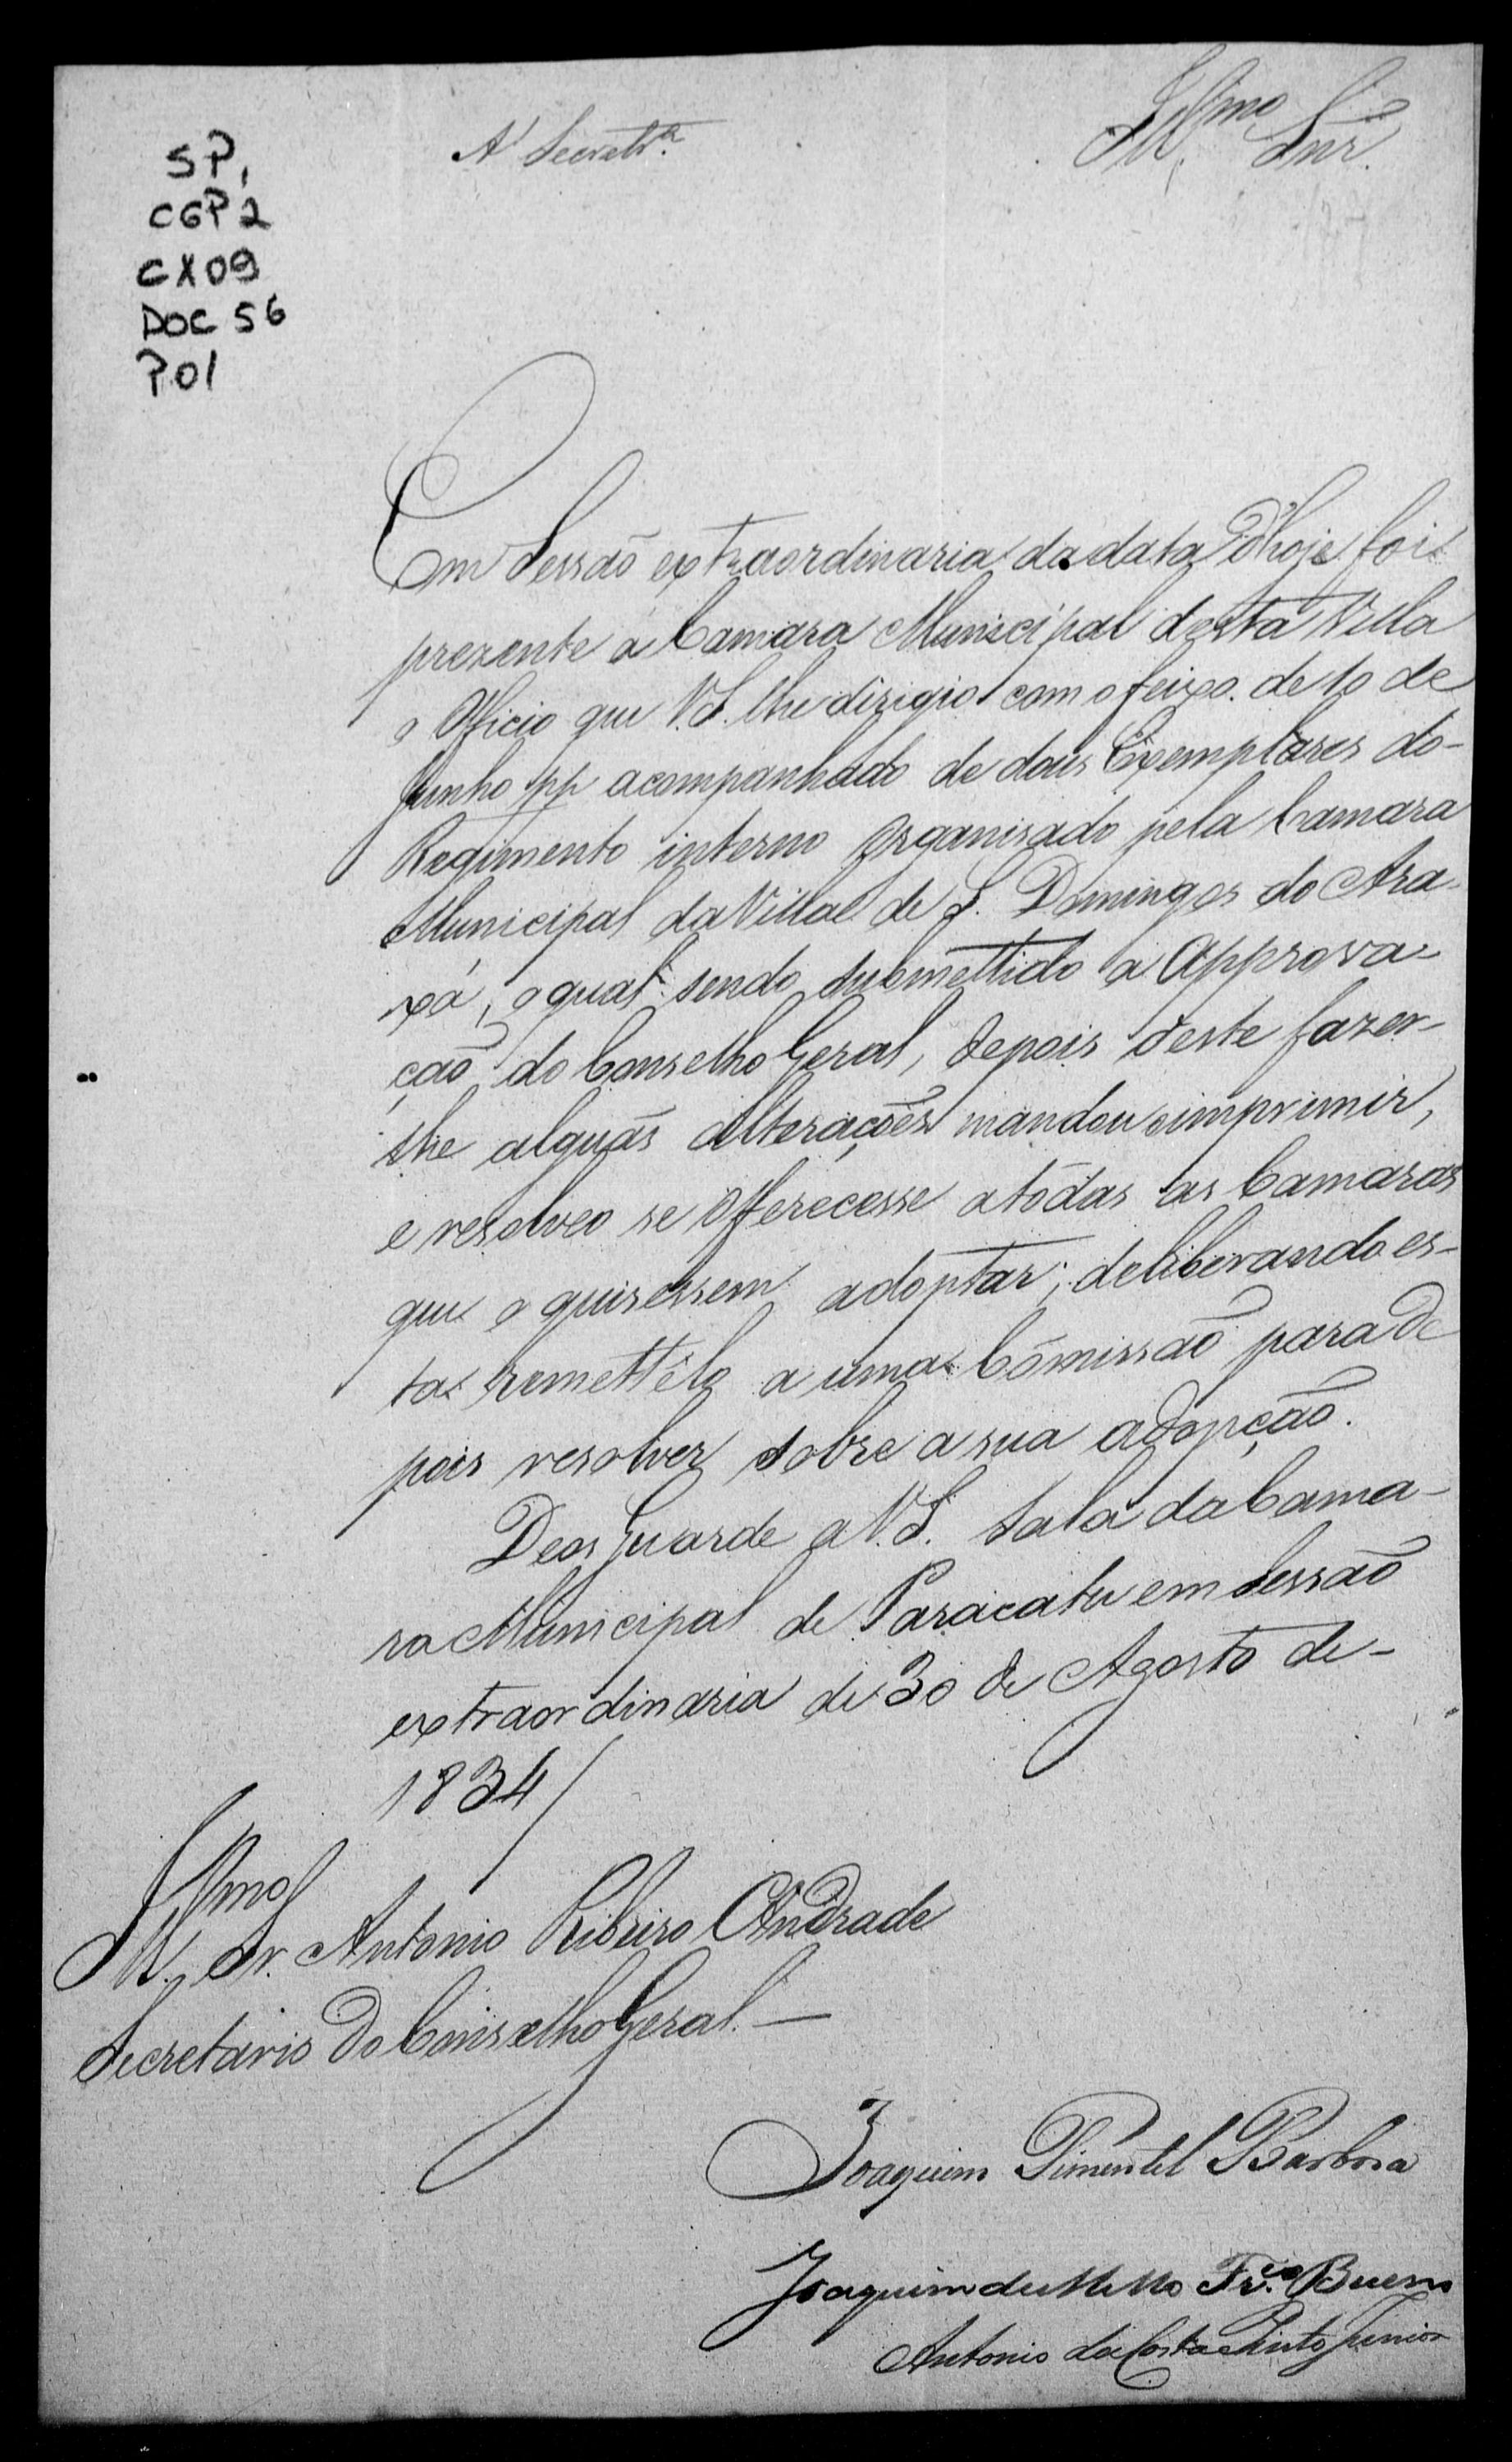 SP,
CGP2
CX09
DOC 56
P.01
A' Secretr.ª
Ill.mo Snr.
Em Sessão extraordinaria da data d'hoje foi
prezente á Camara Municipal desta Villa
o Officio que V.S. lhe dirigio com o feixo de 10 de
Junho pp acompanhado de dous Exemplares do-
Regimento interno organisado pela Camara
Municipal da Villa de S. Domingos do Ara-
xá, o qual sendo submettido a Approva-
ção do Conselho Geral, depois deste fazer-
lhe alguãs alterações mandou imprimir,
e resolveo se offerecesse a todas as Camaras
que o quisessem adoptar; deliberando es-
ta remettêlo a uma Cõmissão para de
pois resolver sobre a sua adopção.
Deos Guarde a V.S. Sala da Cama-
ra Municipal de Paracatu em Sessão
extraordinaria de 30 de Agosto de-
1834/
Ill.mo Sr. Antonio Ribeiro Andrade
Secretario do Conselho Geral.—
Joaquim Pimentel Barbosa
Joaquim de Mello Fr.co Bueno
Antonio da Costa Pinto Junior